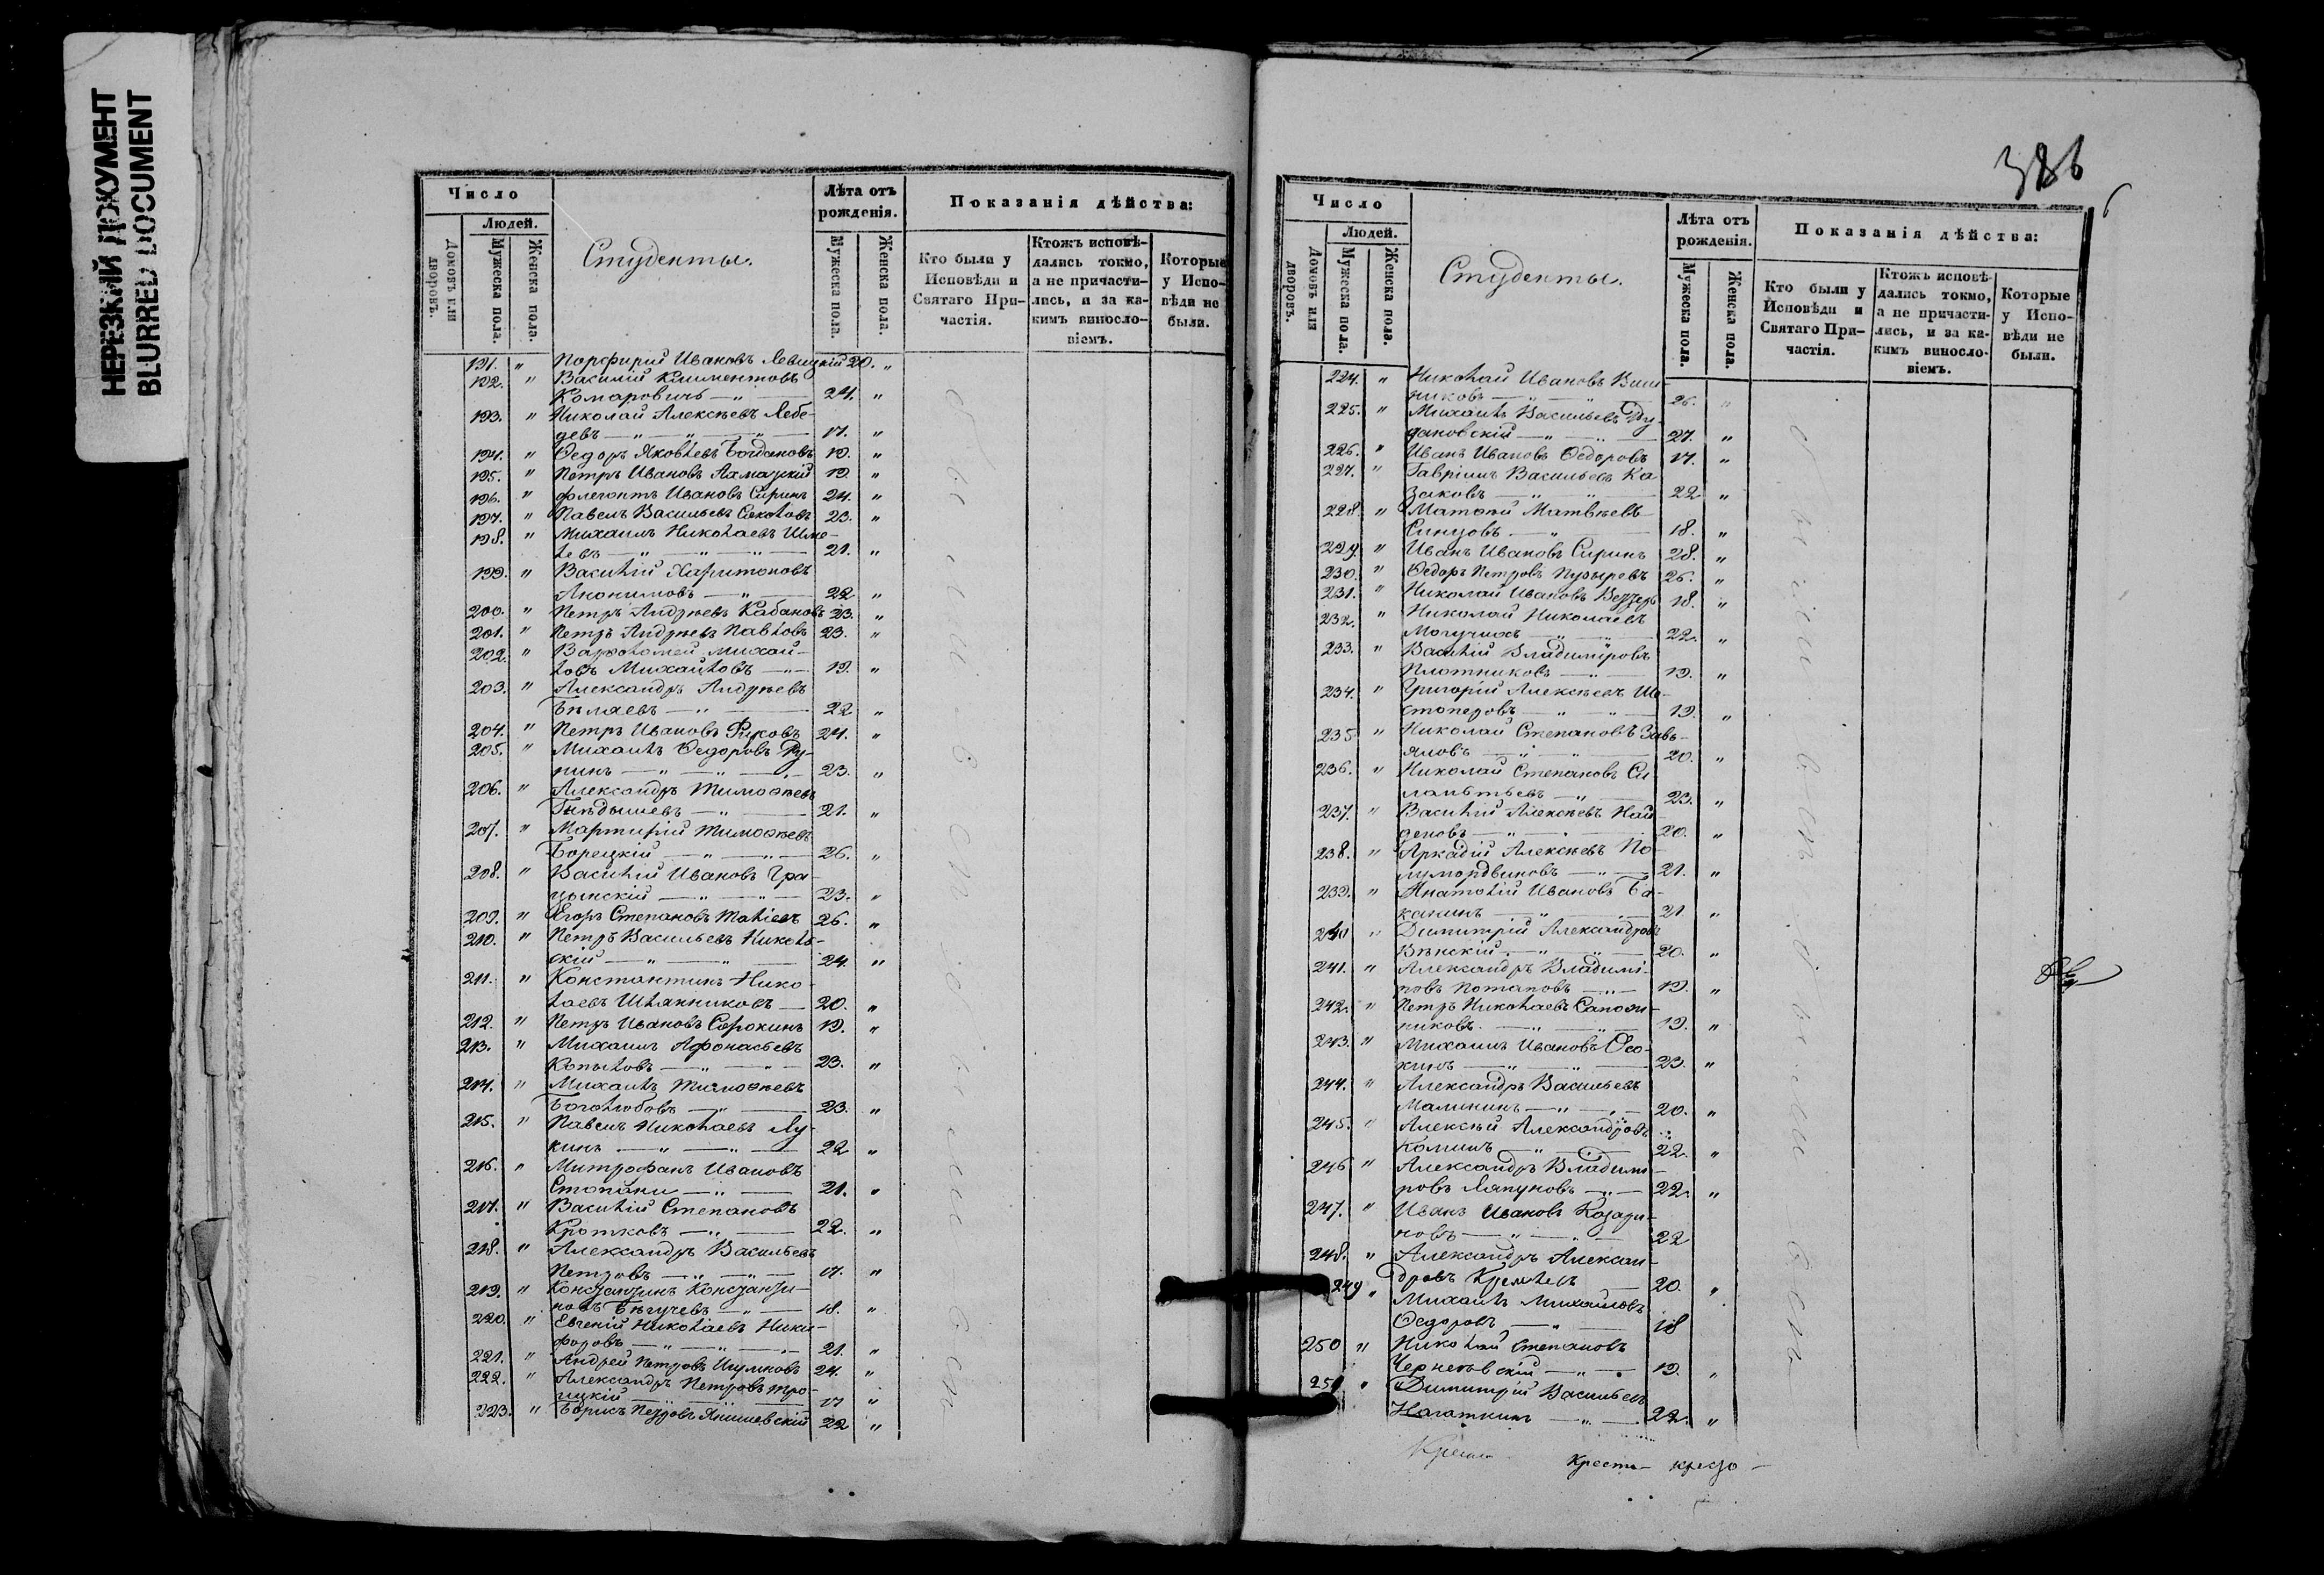 НЕРЕЗКИЙ ДОКУМЕНТ
BLURRED DOCUMENT
Число
Людей.
Домовъ или дворовъ.
Мужеска пола.
Женска пола.
Студенты.
Лѣта отъ рожденія.
Мужеска пола.
Женска пола.
Показанія дѣйства:
Кто были у Исповѣди и Святаго Причастія.
Ктожъ исповѣдались токмо, а не причастились, и за какимъ винословіемъ.
Которые у Исповѣди не были.
191. " Порфирій Ивановъ Левицкій 20. "
192. " Василій Климентовъ
Комаровичъ — " — 24. "
193. " Николай Алексѣевъ Лебе-
девъ — " — " — " — 17. "
194. " Ѳедоръ Яковлевъ Богдановъ 19. "
195. " Петръ Ивановъ Алмазскій 19. "
196. " Флегонтъ Ивановъ Сиринъ 24. "
197. " Павелъ Васильевъ Соколовъ 23. "
198. " Михаилъ Николаевъ Шме-
левъ — " — " — " — 21. "
199. " Василій Харитоновъ
Анонимовъ — " — 22 "
200. " Петръ Андреевъ Кабановъ 23. "
201. " Петръ Андреевъ Павловъ 23. "
202. " Варѳоломей Михай-
ловъ Михайловъ — " — 19. "
203. " Александръ Андреевъ
Бѣляевъ — " — 22 "
204. " Петръ Ивановъ Фиковъ 24. "
205. " Михаилъ Ѳедоровъ Ру-
нинъ — " — " — " — 23. "
206. " Александръ Тимоѳѣевъ
Гнѣдышевъ — " — 21. "
207. " Мартирій Тимоѳѣевъ
Борецкій — " — " — 26. "
208. " Василій Ивановъ Гра-
цынскій — " — " — 23. "
209. " Егоръ Степановъ 26. "
210. " Петръ Васильевъ Николь-
скій — " — " — 24. "
211. " Константинъ Нико-
лаевъ Шляпниковъ — 20. "
212. " Петръ Ивановъ Сорокинъ 19. "
213. " Михаилъ Афонасьевъ
Копыловъ — " — " — 23. "
214. " Михаилъ Тимоѳѣевъ
Боголюбовъ — " — 23. "
215. " Павелъ Николаевъ Лу-
кинъ — " — " — 22 "
216. " Митрофанъ Ивановъ
Стопани — " — 21. "
217. " Василій Степановъ
Кротковъ — " — 22. "
218. " Александръ Васильевъ
Петровъ — " — " — 17. "
219. " Константинъ Константи-
новъ Бѣгучевъ — " — 18. "
220. " Евгеній Николаевъ Ники-
форовъ — " — " — " — 21. "
221. " Андрей Петровъ 24. "
222. " Александръ Петровъ Тро-
ицкій — 17 "
223. " Борисъ Петровъ Янишевскій 22 "
386
Число
Людей.
Домовъ или дворовъ.
Мужеска пола.
Женска пола.
Студенты.
Лѣта отъ рожденія.
Мужеска пола.
Женска пола.
Показанія дѣйства:
Кто были у Исповѣди и Святаго Причастія.
Ктожъ исповѣдались токмо, а не причастились, и за какимъ винословіемъ.
Которые у Исповѣди не были.
224. " Николай Ивановъ
26. "
225. " Михаилъ Васильевъ Ру-
дановскій — " — " — 27. "
226. " Иванъ Ивановъ Ѳедоровъ 17. "
227. " Гавріилъ Васильевъ Ка-
заковъ — " — " — 22 "
228. " Матѳѣй Матвѣевъ
Синцовъ — " — 18. "
229. " Иванъ Ивановъ Сиринъ 28. "
230. " Ѳедоръ Петровъ Пузыревъ 26. "
231. " Николай Ивановъ 18. "
232. " Николай Николаевъ
Могучихъ — " — " 22. "
233. " Василій Владиміровъ
Плотниковъ — " — 19. "
234. " Григорій Алексѣевъ Ше-
стоперовъ — " — " — 19. "
235 " Николай Степановъ Завь-
яловъ — " — " 20. "
236. " Николай Степановъ Си-
лантьевъ — " — 23. "
237. " Василій Алексѣевъ Най-
деновъ — " — " — 20. "
238. " Аркадій Алексѣевъ По-
лумордвиновъ — " — 21. "
239. " Анатолій Ивановъ Ба-
канинъ — " — " — 21. "
240 " Димитрій Александровъ
Вѣнскій. — " — " — 20. "
241. " Александръ Владимі-
ровъ Потаповъ — " — 19. "
242. " Петръ Николаевъ Сапож-
никовъ. — " — " — 19. "
243. " Михаилъ Ивановъ Осо-
кинъ — " — " — 23. "
244. " Александръ Васильевъ
Малининъ — " — " — 20. "
245. " Алексѣй Александровъ
Коминъ — " — 22. "
246 " Александръ Владими-
ровъ Ляпуновъ — " — 22. "
247. " Иванъ Ивановъ Козари-
новъ — " — " — 22
248. " Александръ Алексан-
дровъ Кремлевъ — 20. "
249 " Михаилъ Михайловъ
Ѳедоровъ — " — 18
250 " Николай Степановъ
— " — 19. "
251 " Димитрій Васильевъ
Нагаткинъ — " — 22. "
Крести-